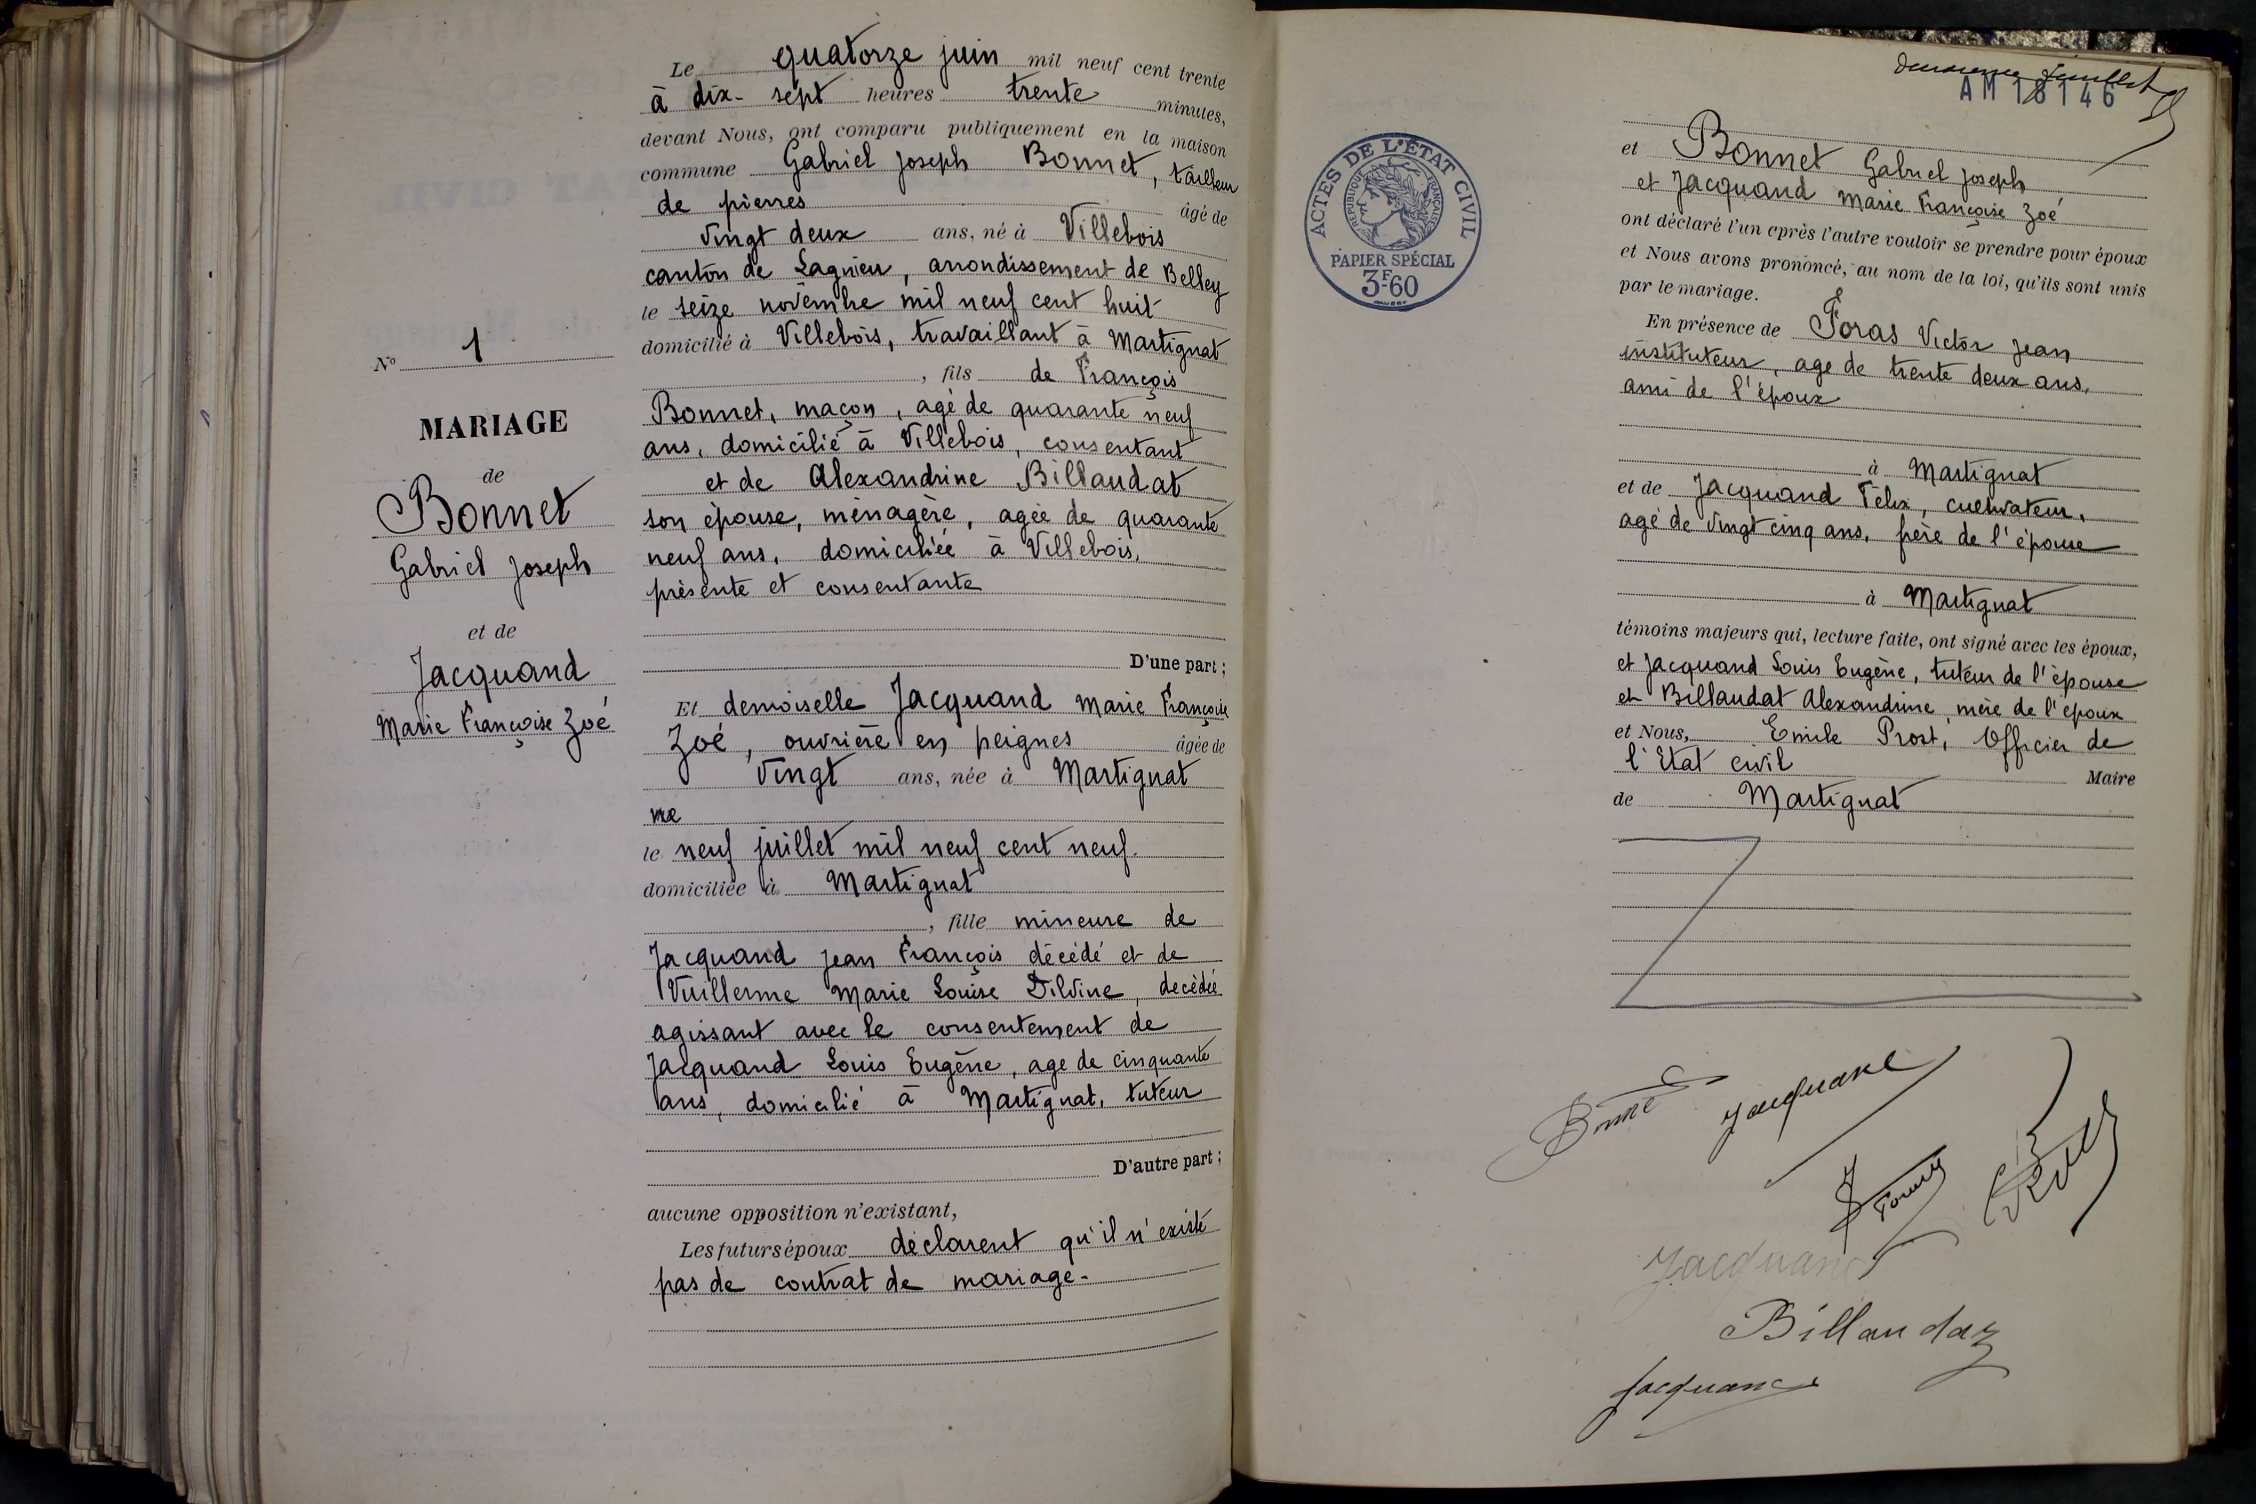 N° 1
MARIAGE
de
Bonnet
Gabriel Joseph
et de
Jacquand
Marie Françoise Zoé
Le quatorze juin mil neuf cent trente
à dix-sept heures trente minutes,
devant Nous, ont comparu publiquement en la maison
commune Gabriel Joseph Bonnet, tailleur
de pierres âgé de
vingt deux ans, né à Villebois
canton de Lagnieu, arrondissement de Belley
le seize novembre mil neuf cent huit
domicilié à Villebois, travaillant à Martignat
, fils de François
Bonnet, maçon, agé de quarante neuf
ans, domicilié à Villebois, consentant
et de Alexandrine Billaudat
son épouse, ménagère, agée de quarante
neuf ans, domiciliée à Villebois,
présente et consentante
D'une part;
Et demoiselle Jacquand Marie Françoise
Zoé, ouvrière en peignes âgée de
vingt ans, née à Martignat
le neuf juillet mil neuf cent neuf
domiciliée à Martignat
, fille mineure de
Jacquand Jean François décédé et de
Vuillerme Marie Louise Dilvine, decédée
agissant avec le consentement de
Jacquand Louis Eugène, age de cinquante
ans, domicilié à Martignat, tuteur
D'autre part;
aucune opposition n'existant,
Les futurs époux déclarent qu'il n'existe
pas de contrat de mariage-
ACTES DE L'ÉTAT CIVIL
RÉPUBLIQUE FRANÇAISE
PAPIER SPÉCIAL
3F60
deuxième feuillet
AM 18146
et Bonnet Gabriel Joseph
et Jacquand Marie Françoise Zoé
ont déclaré l'un après l'autre vouloir se prendre pour époux
et Nous avons prononcé, au nom de la loi, qu'ils sont unis
par le mariage.
En présence de Foras Victor Jean
instituteur, age de trente deux ans,
ami de l'époux
à Martignat
et de Jacquand Félix, cultivateur,
agé de vingt cinq ans, frère de l'épouse
à Martignat
témoins majeurs qui, lecture faite, ont signé avec les époux,
et Jacquand Louis Eugène, tuteur de l'épouse
et Billaudat Alexandrine, mère de l'époux
et Nous, Emile Prost, Officier de
l'Etat civil Maire
de Martignat
Bonnet
Jacquand
Foras
Jacquand
Billaudaz
Jacquand